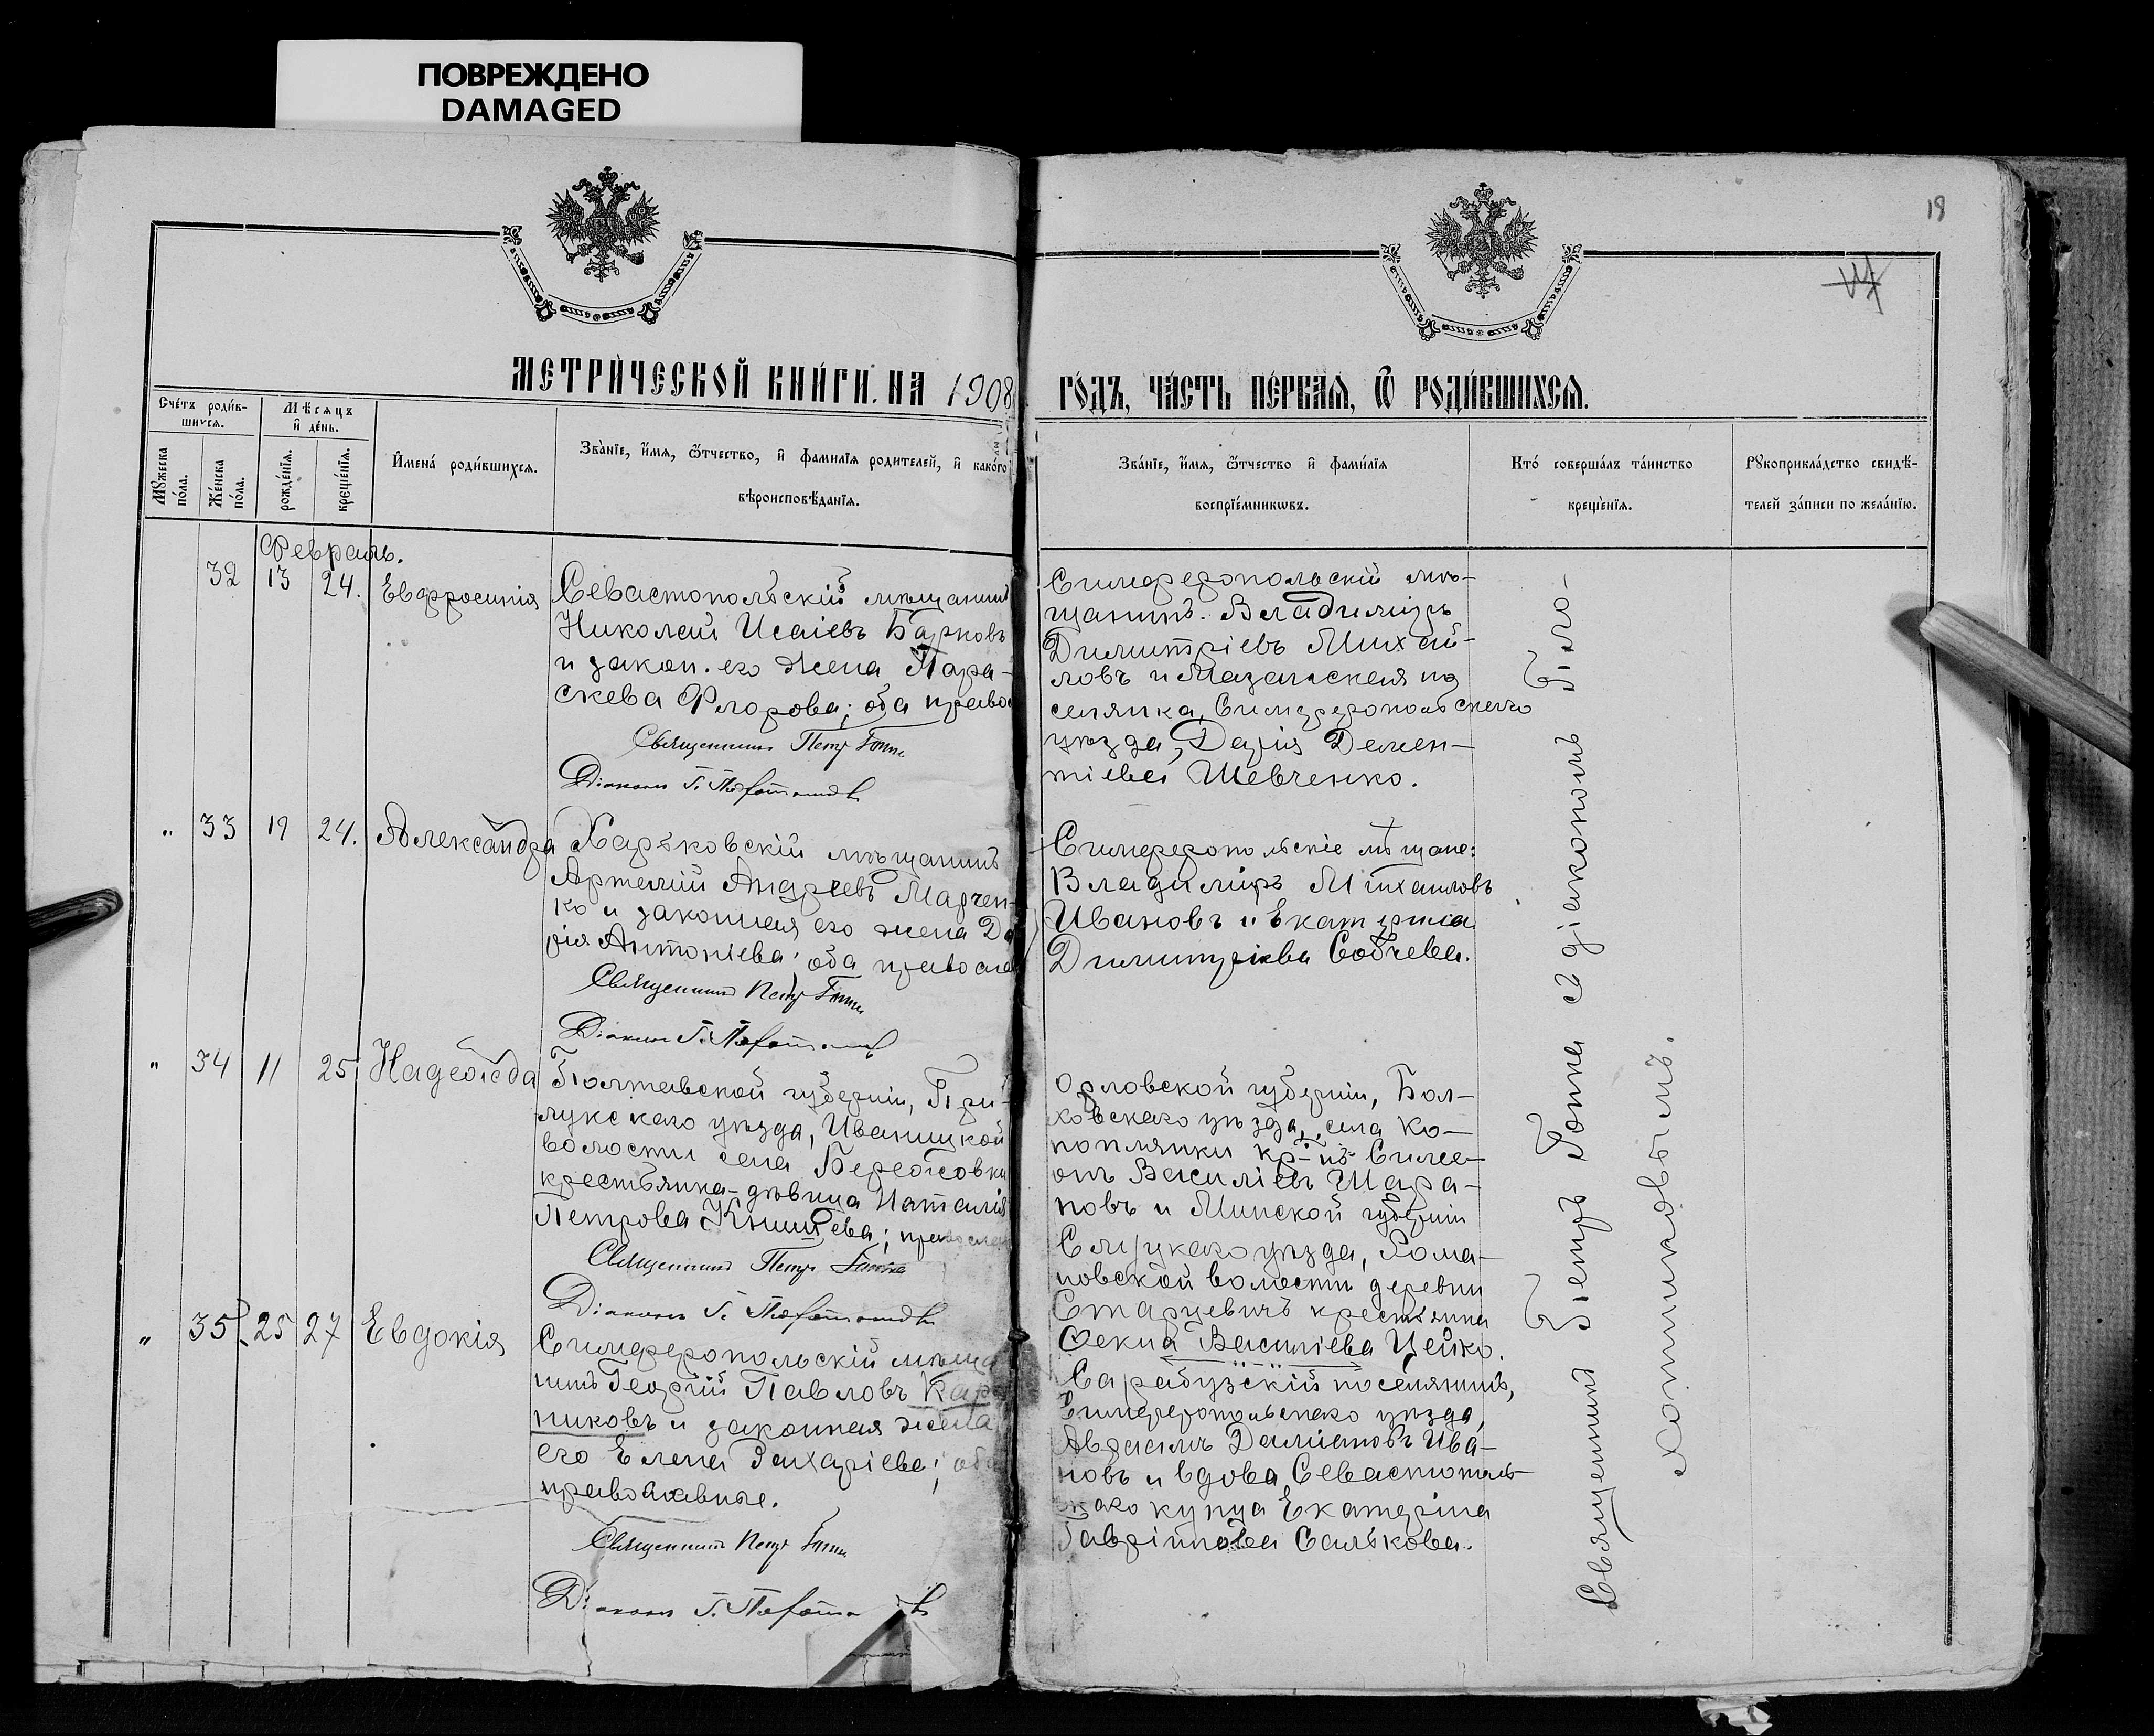 ПОВРЕЖДЕНО
DAMAGED
18
МЕТРИ́ЧЕСКОЙ КНИ́ГИ НА 1908
ГО́ДЪ, ЧА́СТЬ ПЕ́РВАЯ, Ѿ РОДИ́ВШИХСЯ.
Сче́тъ роди́в-
шихся.
Мѣ́сяцъ
и̂ де́нь.
Му́жеска по́ла.
Же́нска по́ла.
рожде́нїя.
креще́нїя.
И̂мена́ роди́вшихся.
Зва́нїе, и́мя, ѻ҆́тчество, и̂ фами́лїя родителей, и̂ како́го
вѣроисповѣ́данїя.
Зва́нїе, и́мя, ѻ҆́тчество и̂ фами́лїя
воспрїе́мникѡвъ.
Кто́ соверша́лъ та́инство
креще́нїя.
Рꙋкоприкла́дство свидѣ́-
телей за́писи по жела́нїю.
Февраль.
32 13 24. Евфросинія
Севастопольскій мѣщанинъ
Николай Исаіевъ Барковъ
и закон. его жена Пара-
скева Флорова; оба право
Священникъ Петръ
Діаконъ
Симферопольскій мѣ-
щанинъ Владиміръ
Димитріевъ Михай-
ловъ и Мазанская по
селянка, Симферопольскаго
уѣзда, Дарія Демен-
тіева Шевченко.
" 33 19 24. Александра
Харьковскій мѣщанинъ
Артемій Андреевъ Марчен-
ко и законная его жена Да
рія Антоніева; оба правосла
Священникъ Петръ
Діаконъ
Симферопольскіе мѣщане:
Владиміръ Михаиловъ
Ивановъ и Екатерина
Димитріева Собчева.
" 34 11 25 Надежда
Полтавской губерніи, При-
лукскаго уѣзда, Иваницкой
волости села Бережовки
крестьянка-дѣвица Наталія
Петрова; православ
Священникъ Петръ
Діаконъ
Орловской губерніи, Бол-
ховскаго уѣзда, села Ко-
ноплянки кр-нъ Симе-
онъ Василіевъ Шара-
повъ и Минской губерніи
Слуцкаго уѣзда, Рома-
новской волости деревни
Старцевичъ крестьянка
Фекла Василіева Цейко.
" 35 25 27 Евдокія
Симферопольскій мѣща
нинъ Георгій Павловъ Кар
никовъ и законная жена
его Елена Захаріева; оба
православные.
Священникъ Петръ
Діаконъ
Сарабузскій поселянинъ,
Симферопольскаго уѣзда,
Даміановъ Ива-
новъ и вдова Севастополь
скаго купца Екатерина
Гавріилова Салькова.
Священникъ Петръ съ діакономъ